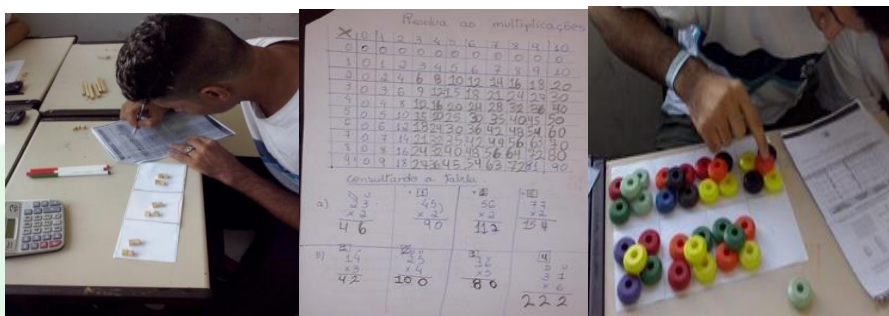 Resolva as multiplicações
X 0 1 2 3 4 5 6 7 8 9 10
0 0 0 0 0 0 0 0 0 0 0 0
1 0 1 2 3 4 5 6 7 8 9 10
2 0 2 4 6 8 10 12 14 16 18 20
3 0 3 6 9 12 15 18 21 24 27
4 0 4 8 12 16 20 24 28 32 36 40
5 0 5 10 15 20 25 30 35 40 45 50
6 0 6 12 18 24 30 36 42 48 54 60
7 0 7 14 21 28 35 42 49 56 63 70
8 0 8 16 24 32 40 48 56 64 72 80
9 0 9 18 27 36 45 54 63 72 81 90
consultando a tabela
a) 23 45 56 77
x2 x2 x2 x2
46 90 112 154
14 25 16 37
x3 x4 x5 x6
42 100 80 222